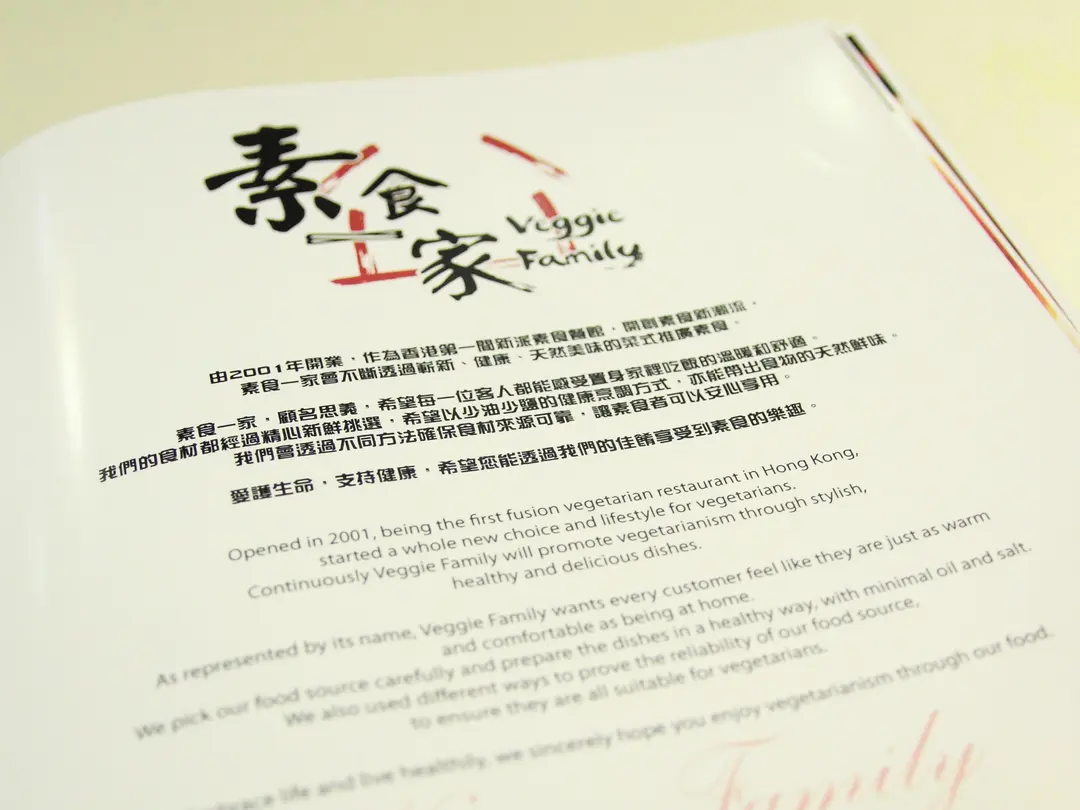 素食一家
Veggie
Family
由2001年開業，作為香港第一間新派素食餐館，開創素食新潮流。
素食一家會不斷透過嶄新、健康、天然美味的菜式推廣素食。
素食一家，顧名思義，希望每一位客人都能感受置身家裡吃飯的溫暖和舒適。
我們的食材都經過精心新鮮挑選，希望以少油少鹽的健康烹調方式，亦能帶出食物的天然鮮味。
我們會透過不同方法確保食材來源可靠，讓素食者可以安心享用。
愛護生命，支持健康，希望您能透過我們的佳餚享受到素食的樂趣。
Opened in 2001, being the first fusion vegetarian restaurant in Hong Kong,
started a whole new choice and lifestyle for vegetarians.
Continuously Veggie Family will promote vegetarianism through stylish,
healthy and delicious dishes.
As represented by its name, Veggie Family wants every customer feel like they are just as warm
and comfortable as being at home.
We pick our food source carefully and prepare the dishes in a healthy way, with minimal oil and salt.
We also used different ways to prove the reliability of our food source,
to ensure they are all suitable for vegetarians.
life and live healthily, we sincerely hope you enjoy vegetarianism through our food.
Family